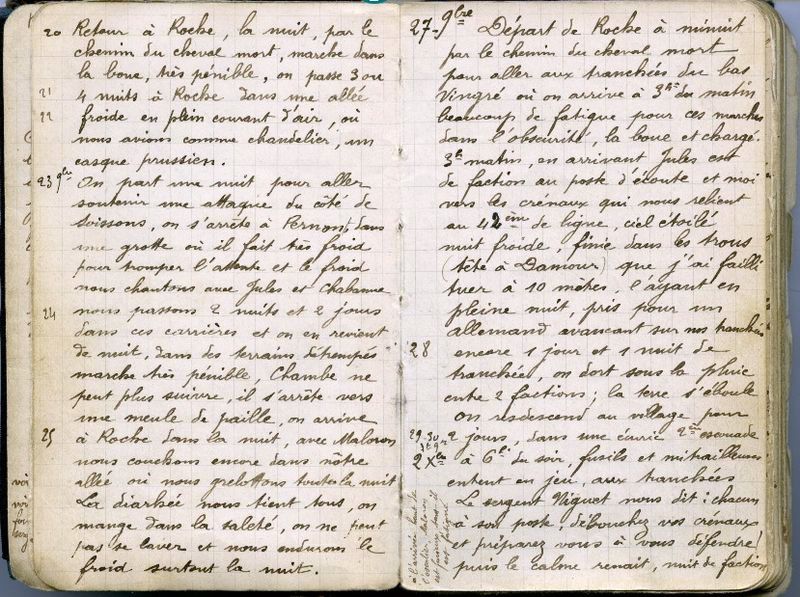 20 Retour à Roche, la nuit, par le
chemin du cheval mort, marche dans
la boue, très pénible, on passe 3 ou
21 4 nuits à Roche dans une allée
22 froide en plein courant d'air, où
nous avions comme chandelier, un
casque prussien.
23 9bre On part une nuit pour aller
soutenir une attaque du côté de
Soissons, on s'arrête à Pernant, dans
une grotte où il fait très froid
pour tromper l'attente et le froid
nous chantons avec Jules et Chabanne
24 nous passons 2 nuits et 2 jours
dans ces carrières et on en revient
de nuit, dans des terrains détrempés
marche très pénible, Chambe ne
peut plus suivre, il s'arrête vers
une meule de paille, on arrive
25 à Roche dans la nuit, avec Maloron
nous couchons encore dans nôtre
allé où nous grelottons toute la nuit
La diarhée nous tient tous, on
mange dans la saleté, on ne peut
pas se laver et nous endurons le
froid surtout la nuit.
27-9bre Départ de Roche à minuit
par le chemin du cheval mort
pour aller aux tranchées du bas
Vingré où on arrive à 3hes du matin
beaucoup de fatigue pour ces marches
dans l'obscurité, la boue et chargé.
3h matin, en arrivant Jules est
de faction au poste d'écoute et moi
vers les crénaux qui nous relient
au 42ème de ligne, ciel étoilé
nuit froide, finie dans les trous
(tête à Damour) que j'ai failli
tuer à 10 mètres, l'ayant en
pleine nuit, pris pour un
allemand avancant sur nos tranchées
28 encore 1 jour et 1 nuit de
tranchée, on dort sous la pluie
entre 2 factions; la terre s'éboule
on resdescend au village pour
29-30 2 jours, dans une écurie 2me escouade
2 Xbre à 6h du soir, fusils et mitrailleuses
entent en jeu, aux tranchées
Le sergent Viguet nous dit: chacun
à son poste, débouchez vos crénaux
et préparez vous à vous défendre!
puis le calme renait, nuit de faction